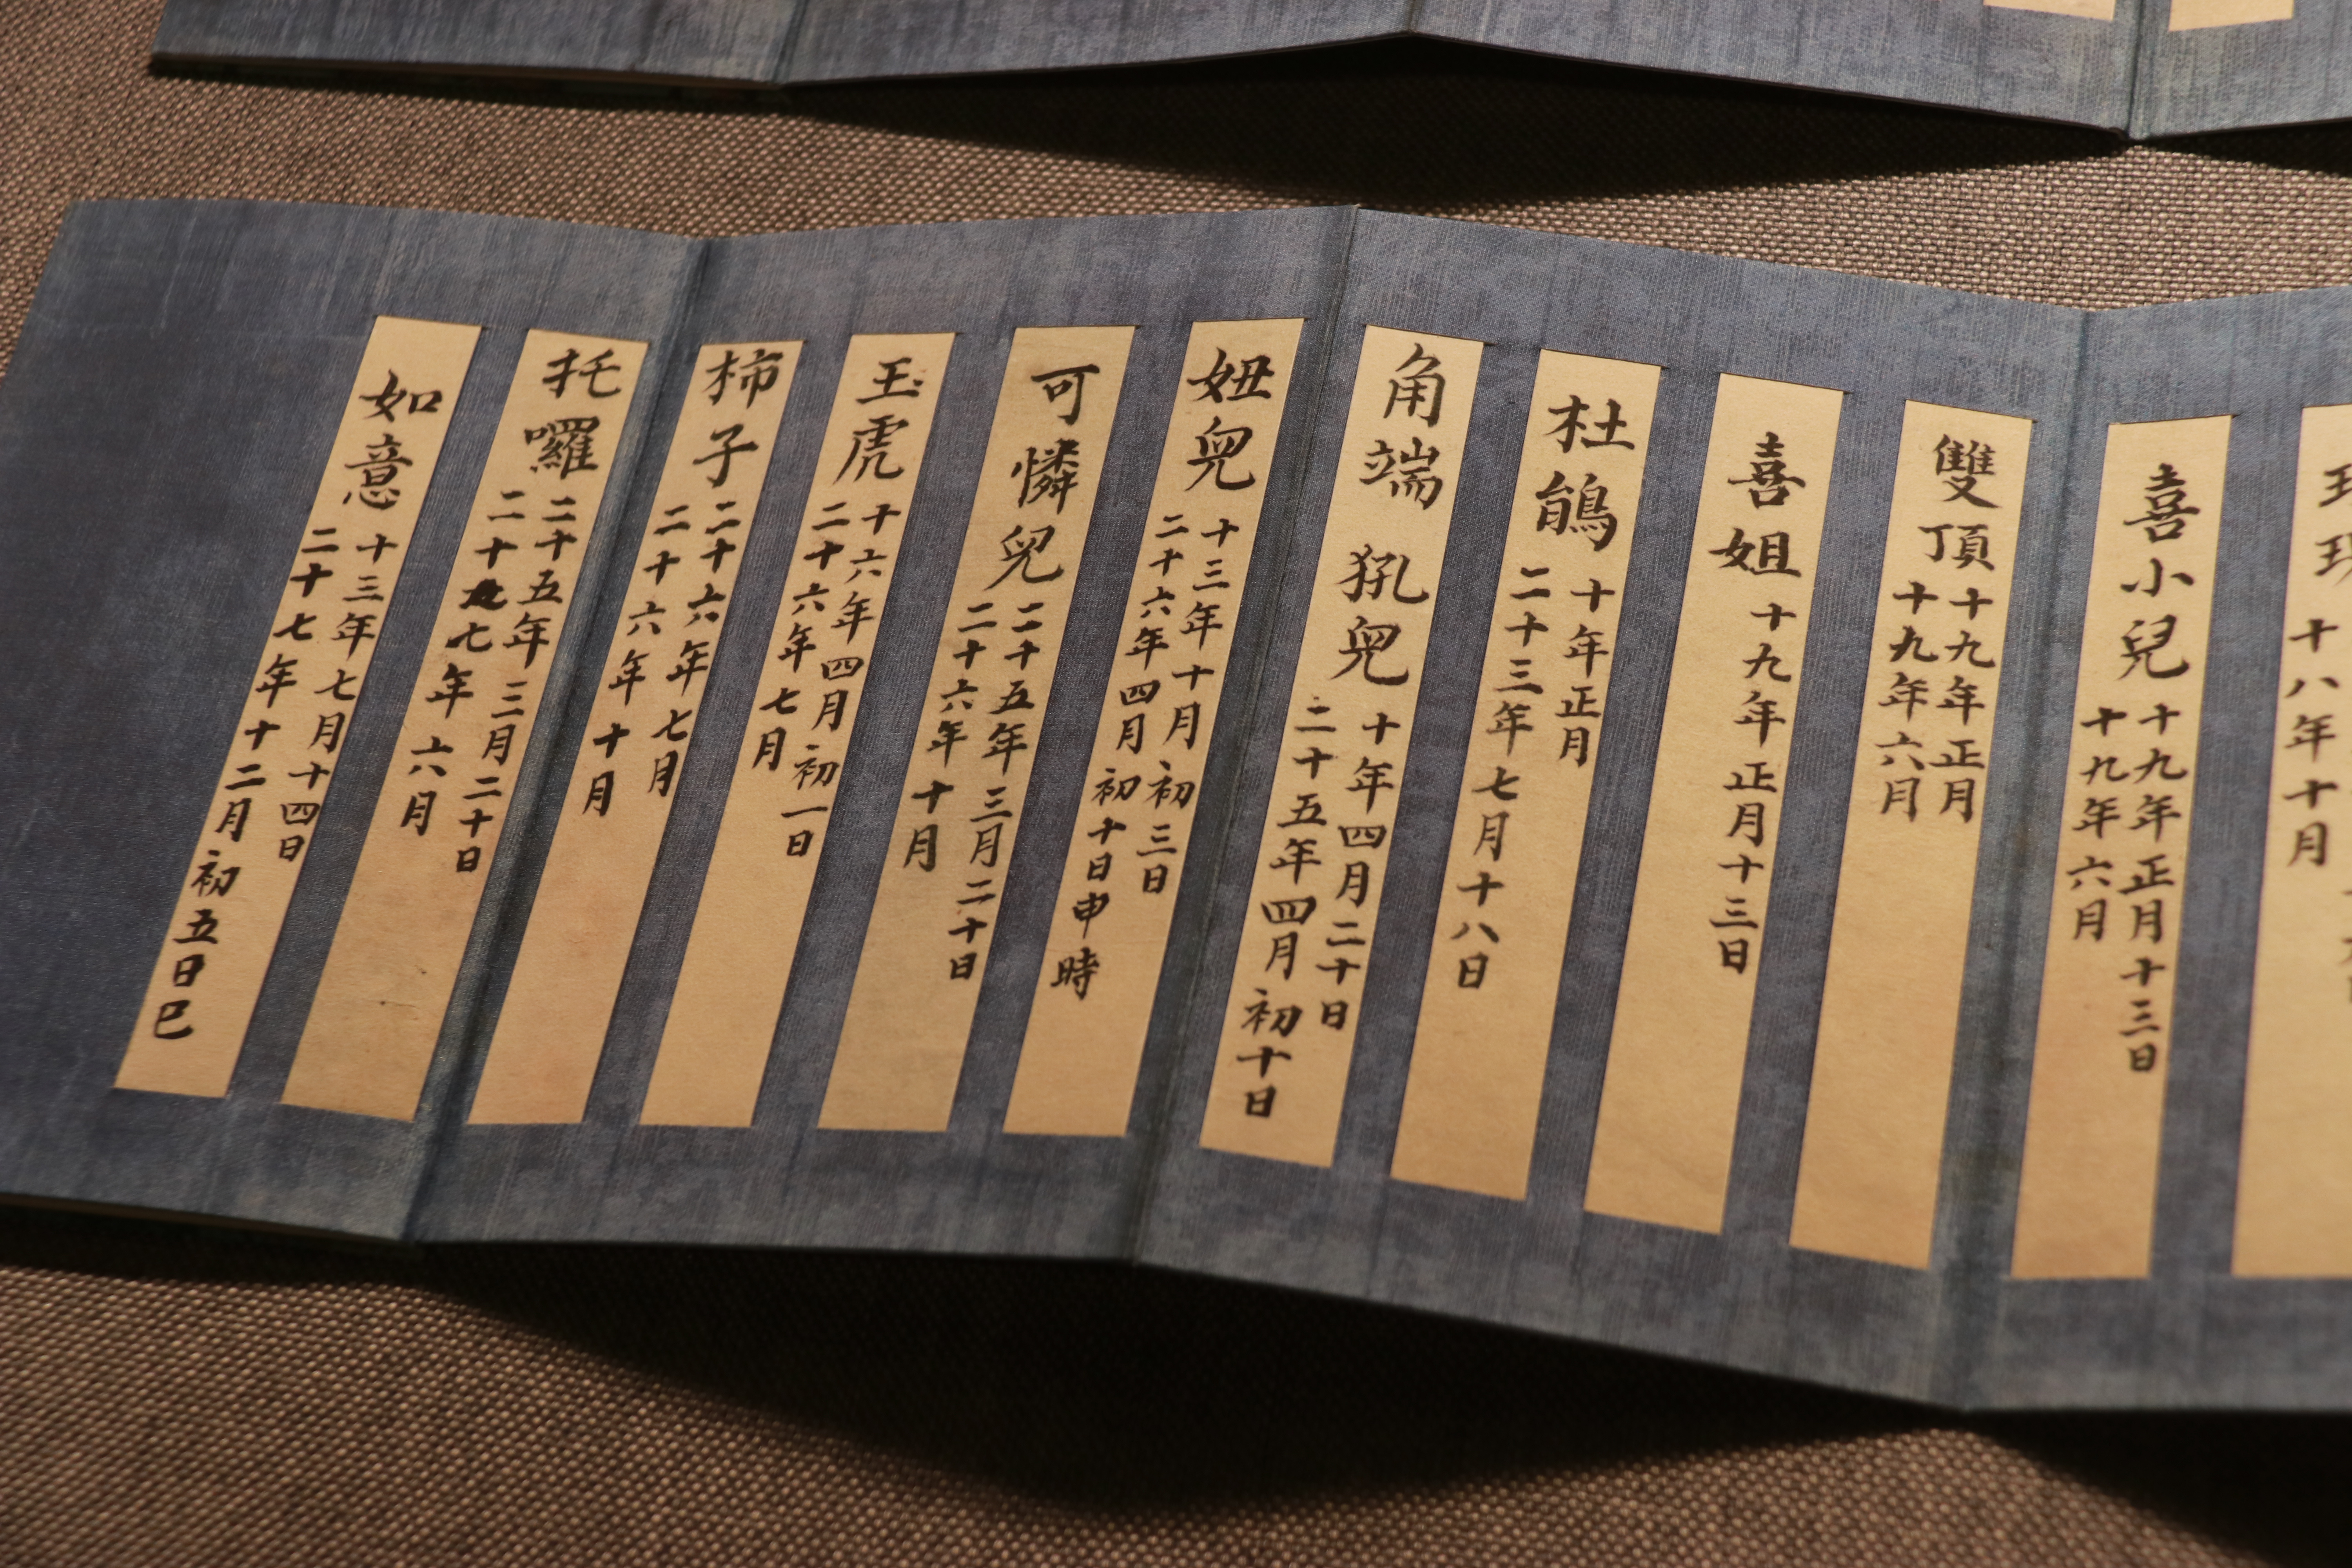 十八年十月
喜小兒
十九年正月十三日
十九年六月
雙頂
十九年正月
十九年六月
喜姐
十九年正月十三日
杜鵑
十年正月
二十三年七月十八日
角端 犼兒
十年四月二十日
二十五年四月初十日
妞兒
十三年十月初三日
二十六年四月初十日申時
可憐兒
二十五年三月二十日
二十六年十月
玉虎
十六年四月初一日
二十六年七月
柿子
二十六年七月
二十六年十月
托囉
二十五年三月二十日
二十七年六月
如意
十三年七月十四日
二十七年十二月初五日巳